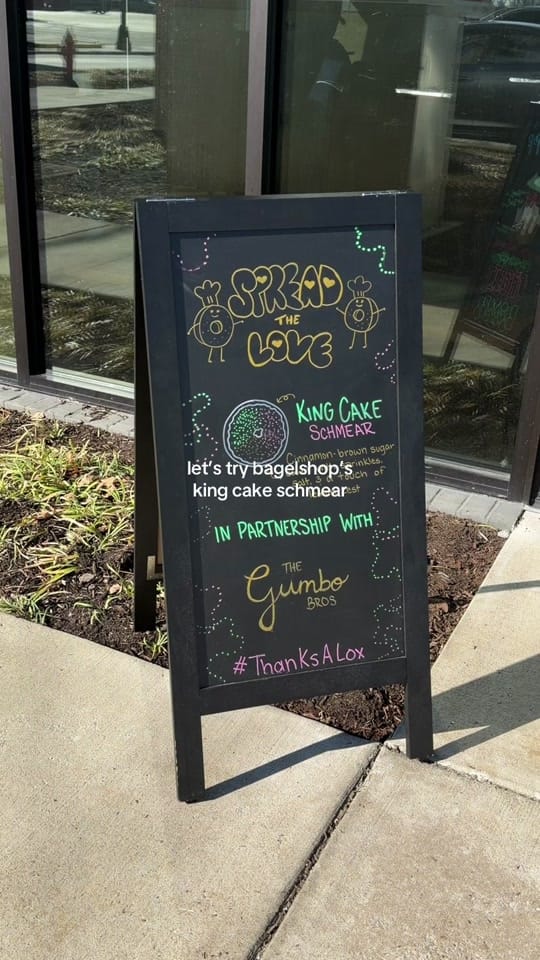 SPREAD
THE
LOVE
KING CAKE
SCHMEAR
Cinnamon-brown sugar
sprinkles,
salt, & a touch of
let's try bagelshop's
king cake schmear
IN PARTNERSHIP WITH
THE
Gumbo
BROS
#ThanksALox